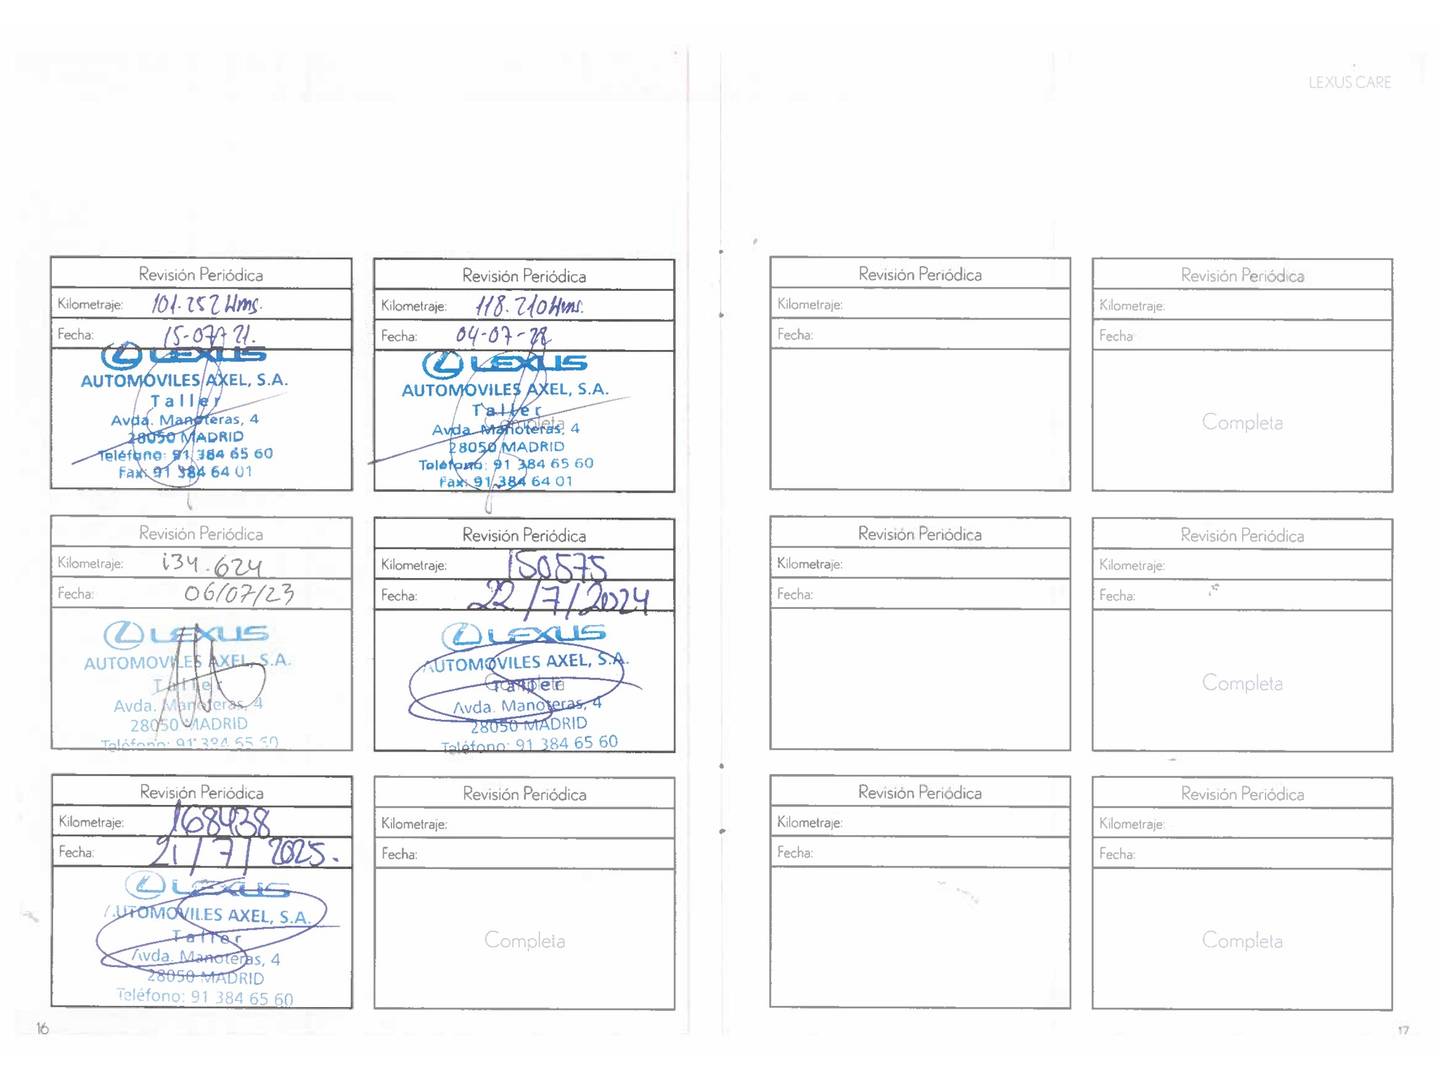 LEXUS CARE
Revisión Periódica
Kilometraje: 101.252 Kms.
Fecha: 15-07-21.
LEXUS
AUTOMOVILES AXEL, S.A.
Taller
Avda. Manoteras, 4
28050 MADRID
Teléfono: 91 384 65 60
Fax: 91 384 64 01
Revisión Periódica
Kilometraje: 118.210 Kms.
Fecha: 04-07-22
LEXUS
AUTOMOVILES AXEL, S.A.
Taller
Completa
Avda. Manoteras, 4
28050 MADRID
Teléfono: 91 384 65 60
Fax: 91 384 64 01
Revisión Periódica
Kilometraje: 134.624
Fecha: 06/07/23
LEXUS
AUTOMOVILES AXEL, S.A.
Taller
Avda. Manoteras, 4
28050 MADRID
Teléfono: 91 384 65 60
Revisión Periódica
Kilometraje: 150575
Fecha: 22/7/2024
LEXUS
AUTOMOVILES AXEL, S.A.
Taller
Completa
Avda. Manoteras, 4
28050 MADRID
Teléfono: 91 384 65 60
Revisión Periódica
Kilometraje: 168438
Fecha: 21/7/2025.
LEXUS
AUTOMOVILES AXEL, S.A.
Taller
Avda. Manoteras, 4
28050 MADRID
Teléfono: 91 384 65 60
Revisión Periódica
Kilometraje:
Fecha:
Completa
16
Revisión Periódica
Kilometraje:
Fecha:
Revisión Periódica
Kilometraje:
Fecha:
Completa
Revisión Periódica
Kilometraje:
Fecha:
Revisión Periódica
Kilometraje:
Fecha:
Completa
Revisión Periódica
Kilometraje:
Fecha:
Revisión Periódica
Kilometraje:
Fecha:
Completa
17